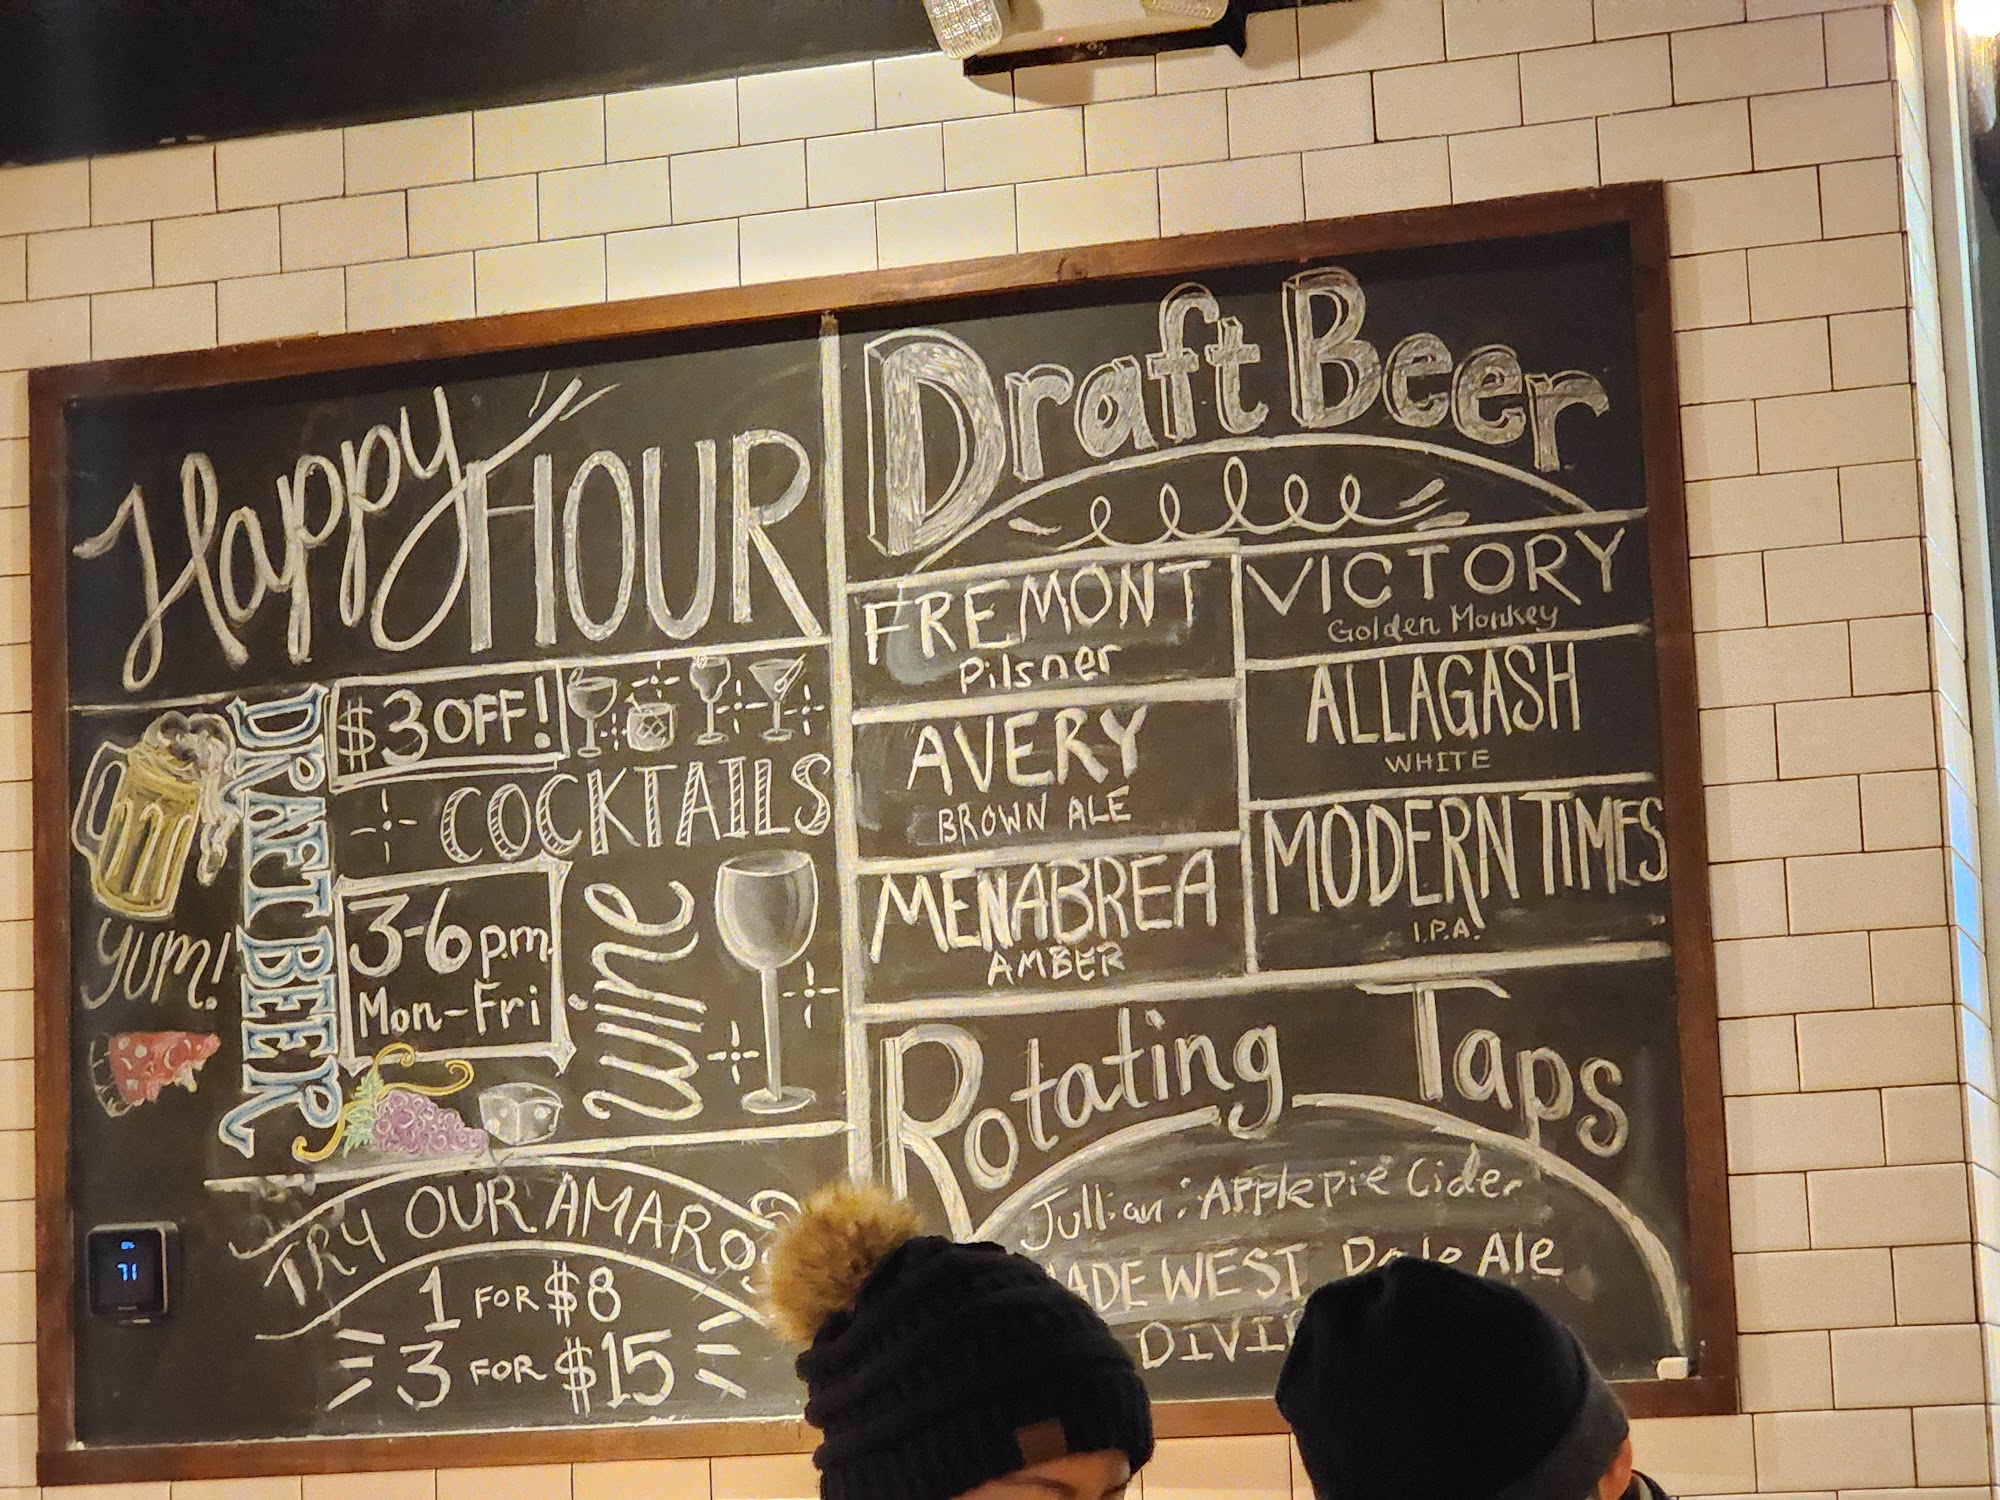 Happy HOUR
DRAFT BEER
$3 OFF!
COCKTAILS
3-6pm
Mon-Fri
wine
yum!
TRY OUR AMAROS
1 FOR $8
3 FOR $15
71
Draft Beer
FREMONT
Pilsner
AVERY
BROWN ALE
MENABREA
AMBER
VICTORY
Golden Monkey
ALLAGASH
WHITE
MODERN TIMES
I.P.A.
Rotating Taps
Jullian: Applepie Cider
WEST Ale